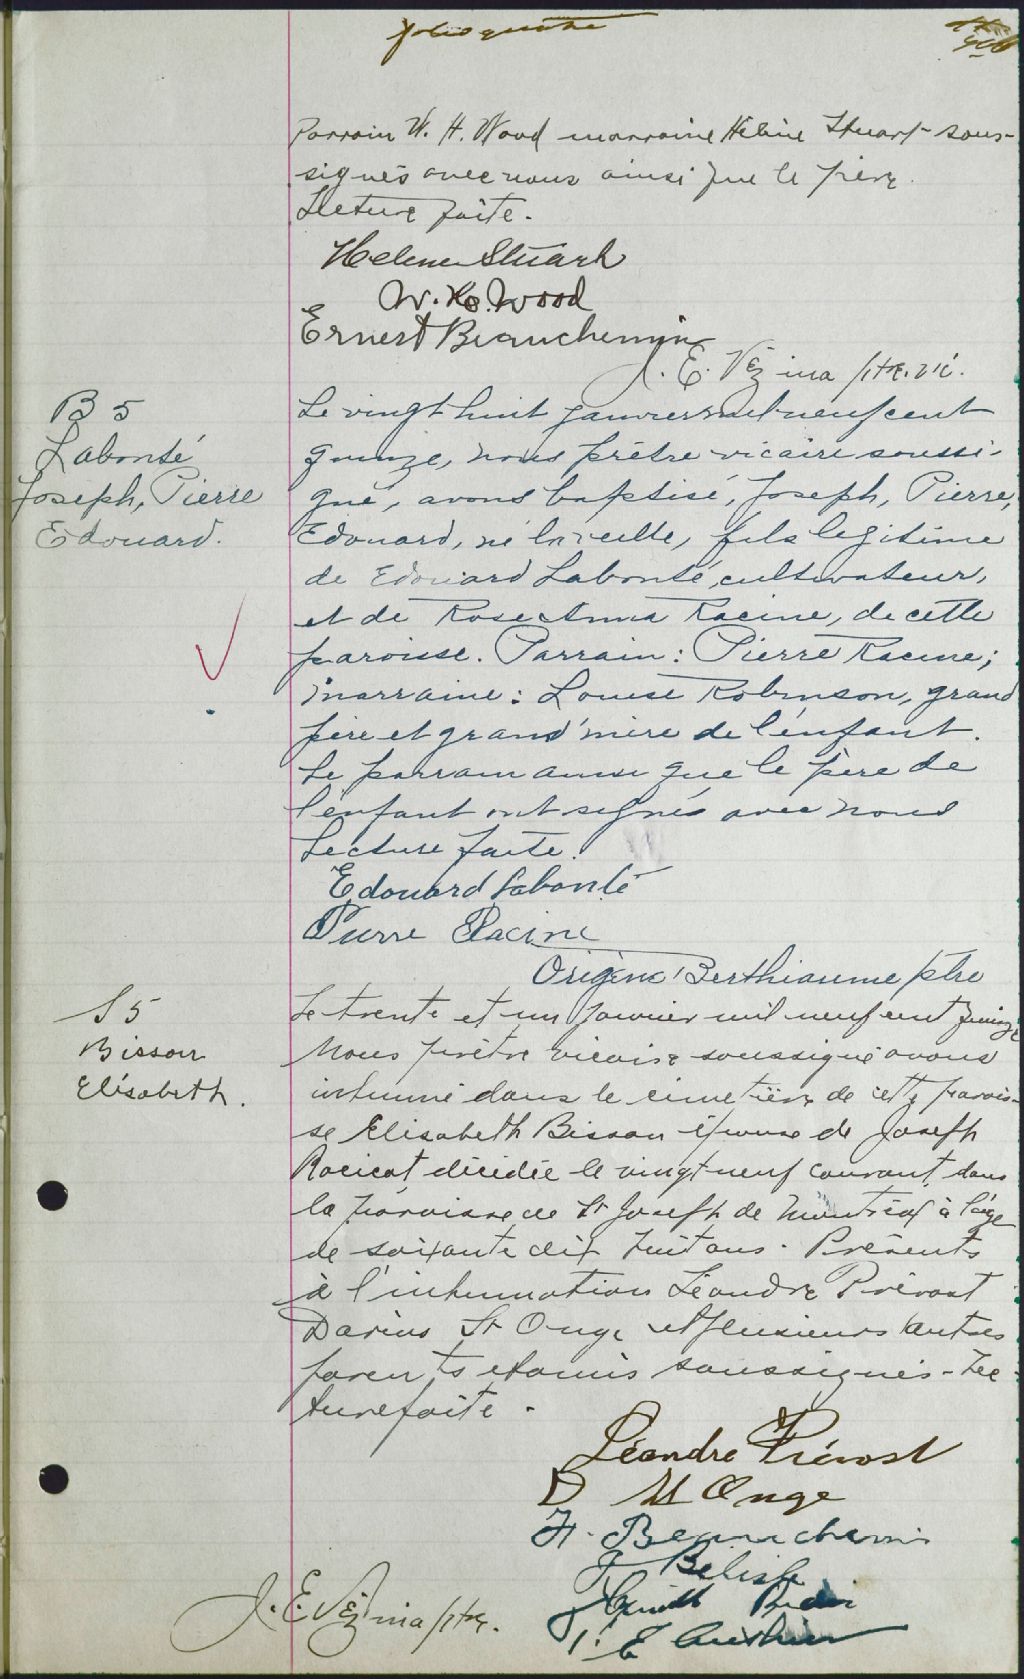 folio quatre
Parrain W. H. Wood marraine Hélène Stuart sous-
signés avec nous ainsi que le père.
Lecture faite.
Helene Stuart
W. H. Wood
Ernest Beauchemin
J. E. Vézina ptre. vic.
B 5
Labonté
Joseph, Pierre
Edouard.
Le vingt huit janvier mil neuf cent
quinze, nous prêtre vicaire soussi-
gné, avons baptisé, Joseph, Pierre,
Edouard, né la veille, fils légitime
de Edouard Labonté, cultivateur,
et de Rose Anna Racine, de cette
paroisse. Parrain : Pierre Racine;
marraine : Louise Robinson, grand
père et grand'mère de l'enfant.
Le parrain ainsi que le père de
l'enfant ont signés avec nous
Lecture faite.
Edouard Labonté
Pierre Racine
Origène Berthiaume ptre
S 5
Bisson
Elisabeth.
Le trente et un janvier mil neuf cent quinze
Nous prêtre vicaire soussigné avons
inhumé dans le cimetière de cette parois-
se Elisabeth Bisson épouse de Joseph
Racicot décédée le vingt neuf courant dans
la paroisse de St Joseph de Montréal à l'âge
de soixante dix huit ans. Présents
à l'inhumation Léandre Prévost
Darius St Onge et plusieurs autres
parents et amis soussignés - Lec-
ture faite.
Léandre Prévost
D St Onge
H. Beauchemin
J Belisle
J. E. Vézina ptre.